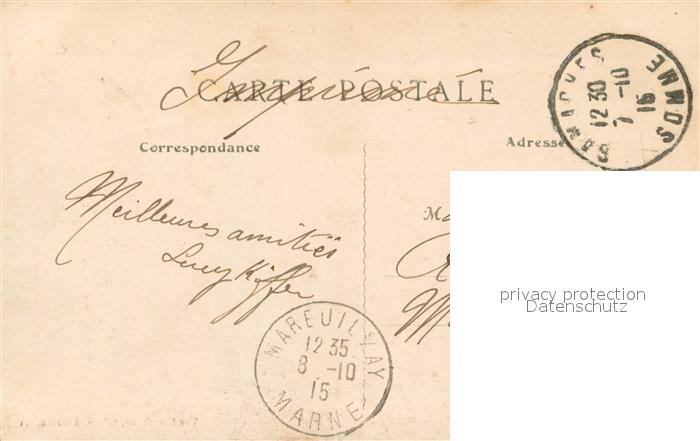 Imprimé
CARTE POSTALE
Correspondance
Adresse
GAMACHES
12 30
7 -10
15
SOMME
Meilleures amitiés
Lucy Kiffer
M
privacy protection
Datenschutz
MAREUIL-S-AY
12 35
8 -10
15
MARNE